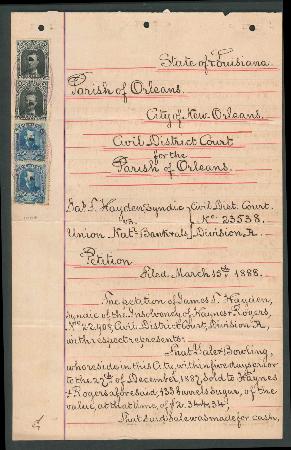 State of Louisiana.
Parish of Orleans.
City of New Orleans.
Civil District Court
for the
Parish of Orleans.
Jas. T. Hayden, Syndic Civil Dist. Court.
vs. No. 23538.
Union Natl. Bank & als Division A.
Petition
Filed March 15th 1888.
The petition of James T. Hayden,
Syndic of the Insolvency of Haynes & Rogers,
No. 22908, Civil District Court, Division A,
with respect represents:
That Gale & Bowling,
who reside in this City, within five days prior
to the 27th of December 1887, sold to Haynes
& Rogers aforesaid 133 barrels sugar, of the
value, at that time, of $2.344.34.
That said sale was made for cash,